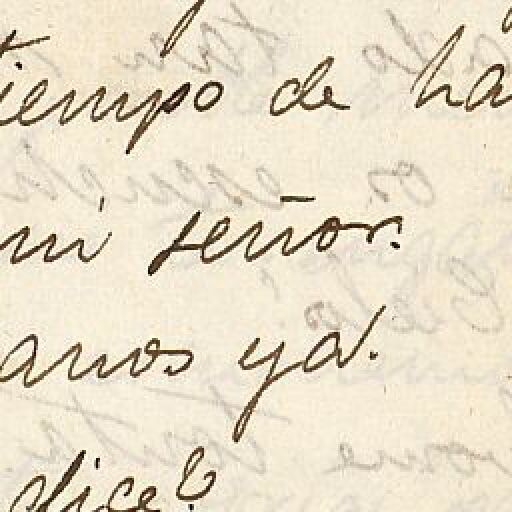 tiempo de ha
mi señor.
anos ya.
dice?